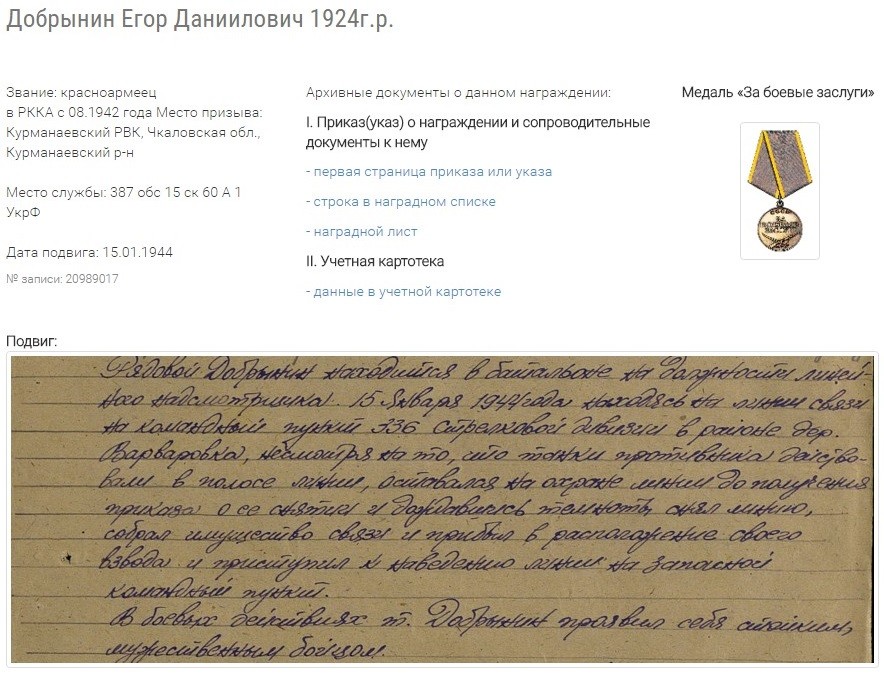 Добрынин Егор Даниилович 1924г.р.
Звание: красноармеец
в РККА с 08.1942 года Место призыва:
Курманаевский РВК, Чкаловская обл.,
Курманаевский р-н
Место службы: 387 обс 15 ск 60 А 1
УкрФ
Дата подвига: 15.01.1944
№ записи: 20989017
Архивные документы о данном награждении:
I. Приказ(указ) о награждении и сопроводительные
документы к нему
- первая страница приказа или указа
- строка в наградном списке
- наградной лист
II. Учетная картотека
- данные в учетной картотеке
Медаль «За боевые заслуги»
Подвиг:
Рядовой Добрынин находится в батальоне на должности линей-
ного надсмотрщика. 15 января 1944 года находясь на линии связи
на командный пункт 336 стрелковой дивизии в районе дер.
Варваровка, несмотря на то, что танки противника действо-
вали в полосе линии, оставался на охране линии до получения
приказа о ее снятии и дождавшись темноты снял линию,
собрал имущество связи и прибыл в расположение своего
взвода и приступил к наведению линии на запасной
командный пункт.
В боевых действиях т. Добрынин проявил себя стойким,
мужественным бойцом.